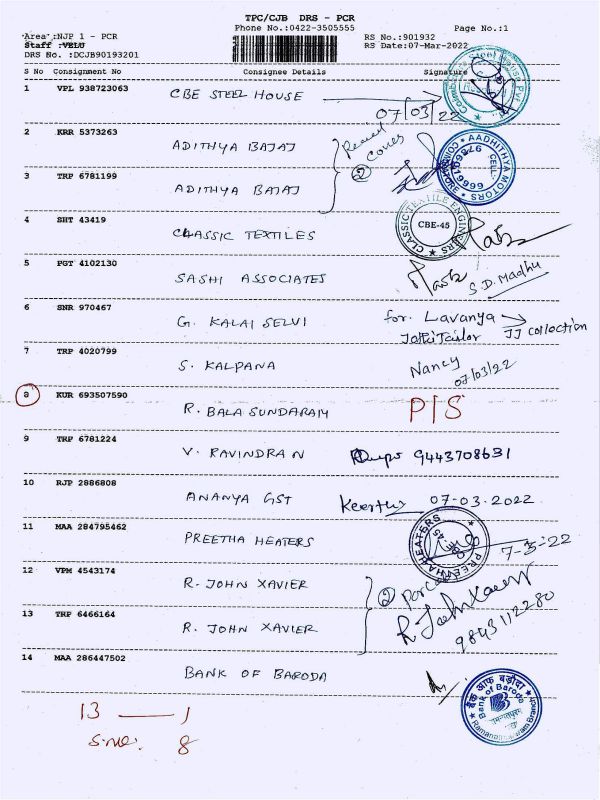 TPC/CJB DRS - PCR
Phone No.:0422-3505555 Page No.:1
Area :NJP 1 - PCR RS No.:901932
Staff :VELU RS Date:07-Mar-2022
DRS No. :DCJB90193201
S No Consignment No Consignee Details Signature
1 VPL 938723063 CBE STEEL HOUSE
07/03/22
2 KRR 5373263 ADITHYA BAJAJ
Covers
3 TRP 6781199 ADITHYA BAJAJ 2
AADHITHYA MOTORS
CELL:
CLASSIC TEXTILE ENGINEERS
CBE-45
4 SHT 43419 CLASSIC TEXTILES
5 PGT 4102130 SASHI ASSOCIATES S.D. Madhu
6 SNR 970467 G. KALAI SELVI for. Lavanya
JJ Collection
7 TRP 4020799 S. KALPANA Nancy
07/03/22
8 KUR 693507590 R. BALA SUNDARAM P/S
9 TRP 6781224 V. RAVINDRAN 9443708631
10 RJP 2886808 ANANYA GST Keerthy 07-03.2022
11 MAA 284795462 PREETHA HEATERS 7-3-22
PREETHA HEATERS
12 VPM 4543174 R. JOHN XAVIER 2
13 TRP 6466164 R. JOHN XAVIER R John Xavier
9843112280
14 MAA 286447502 BANK OF BARODA
बैंक ऑफ बड़ौदा
Bank of Baroda
Ramanathapuram Branch
13 — 1
S.no: 8